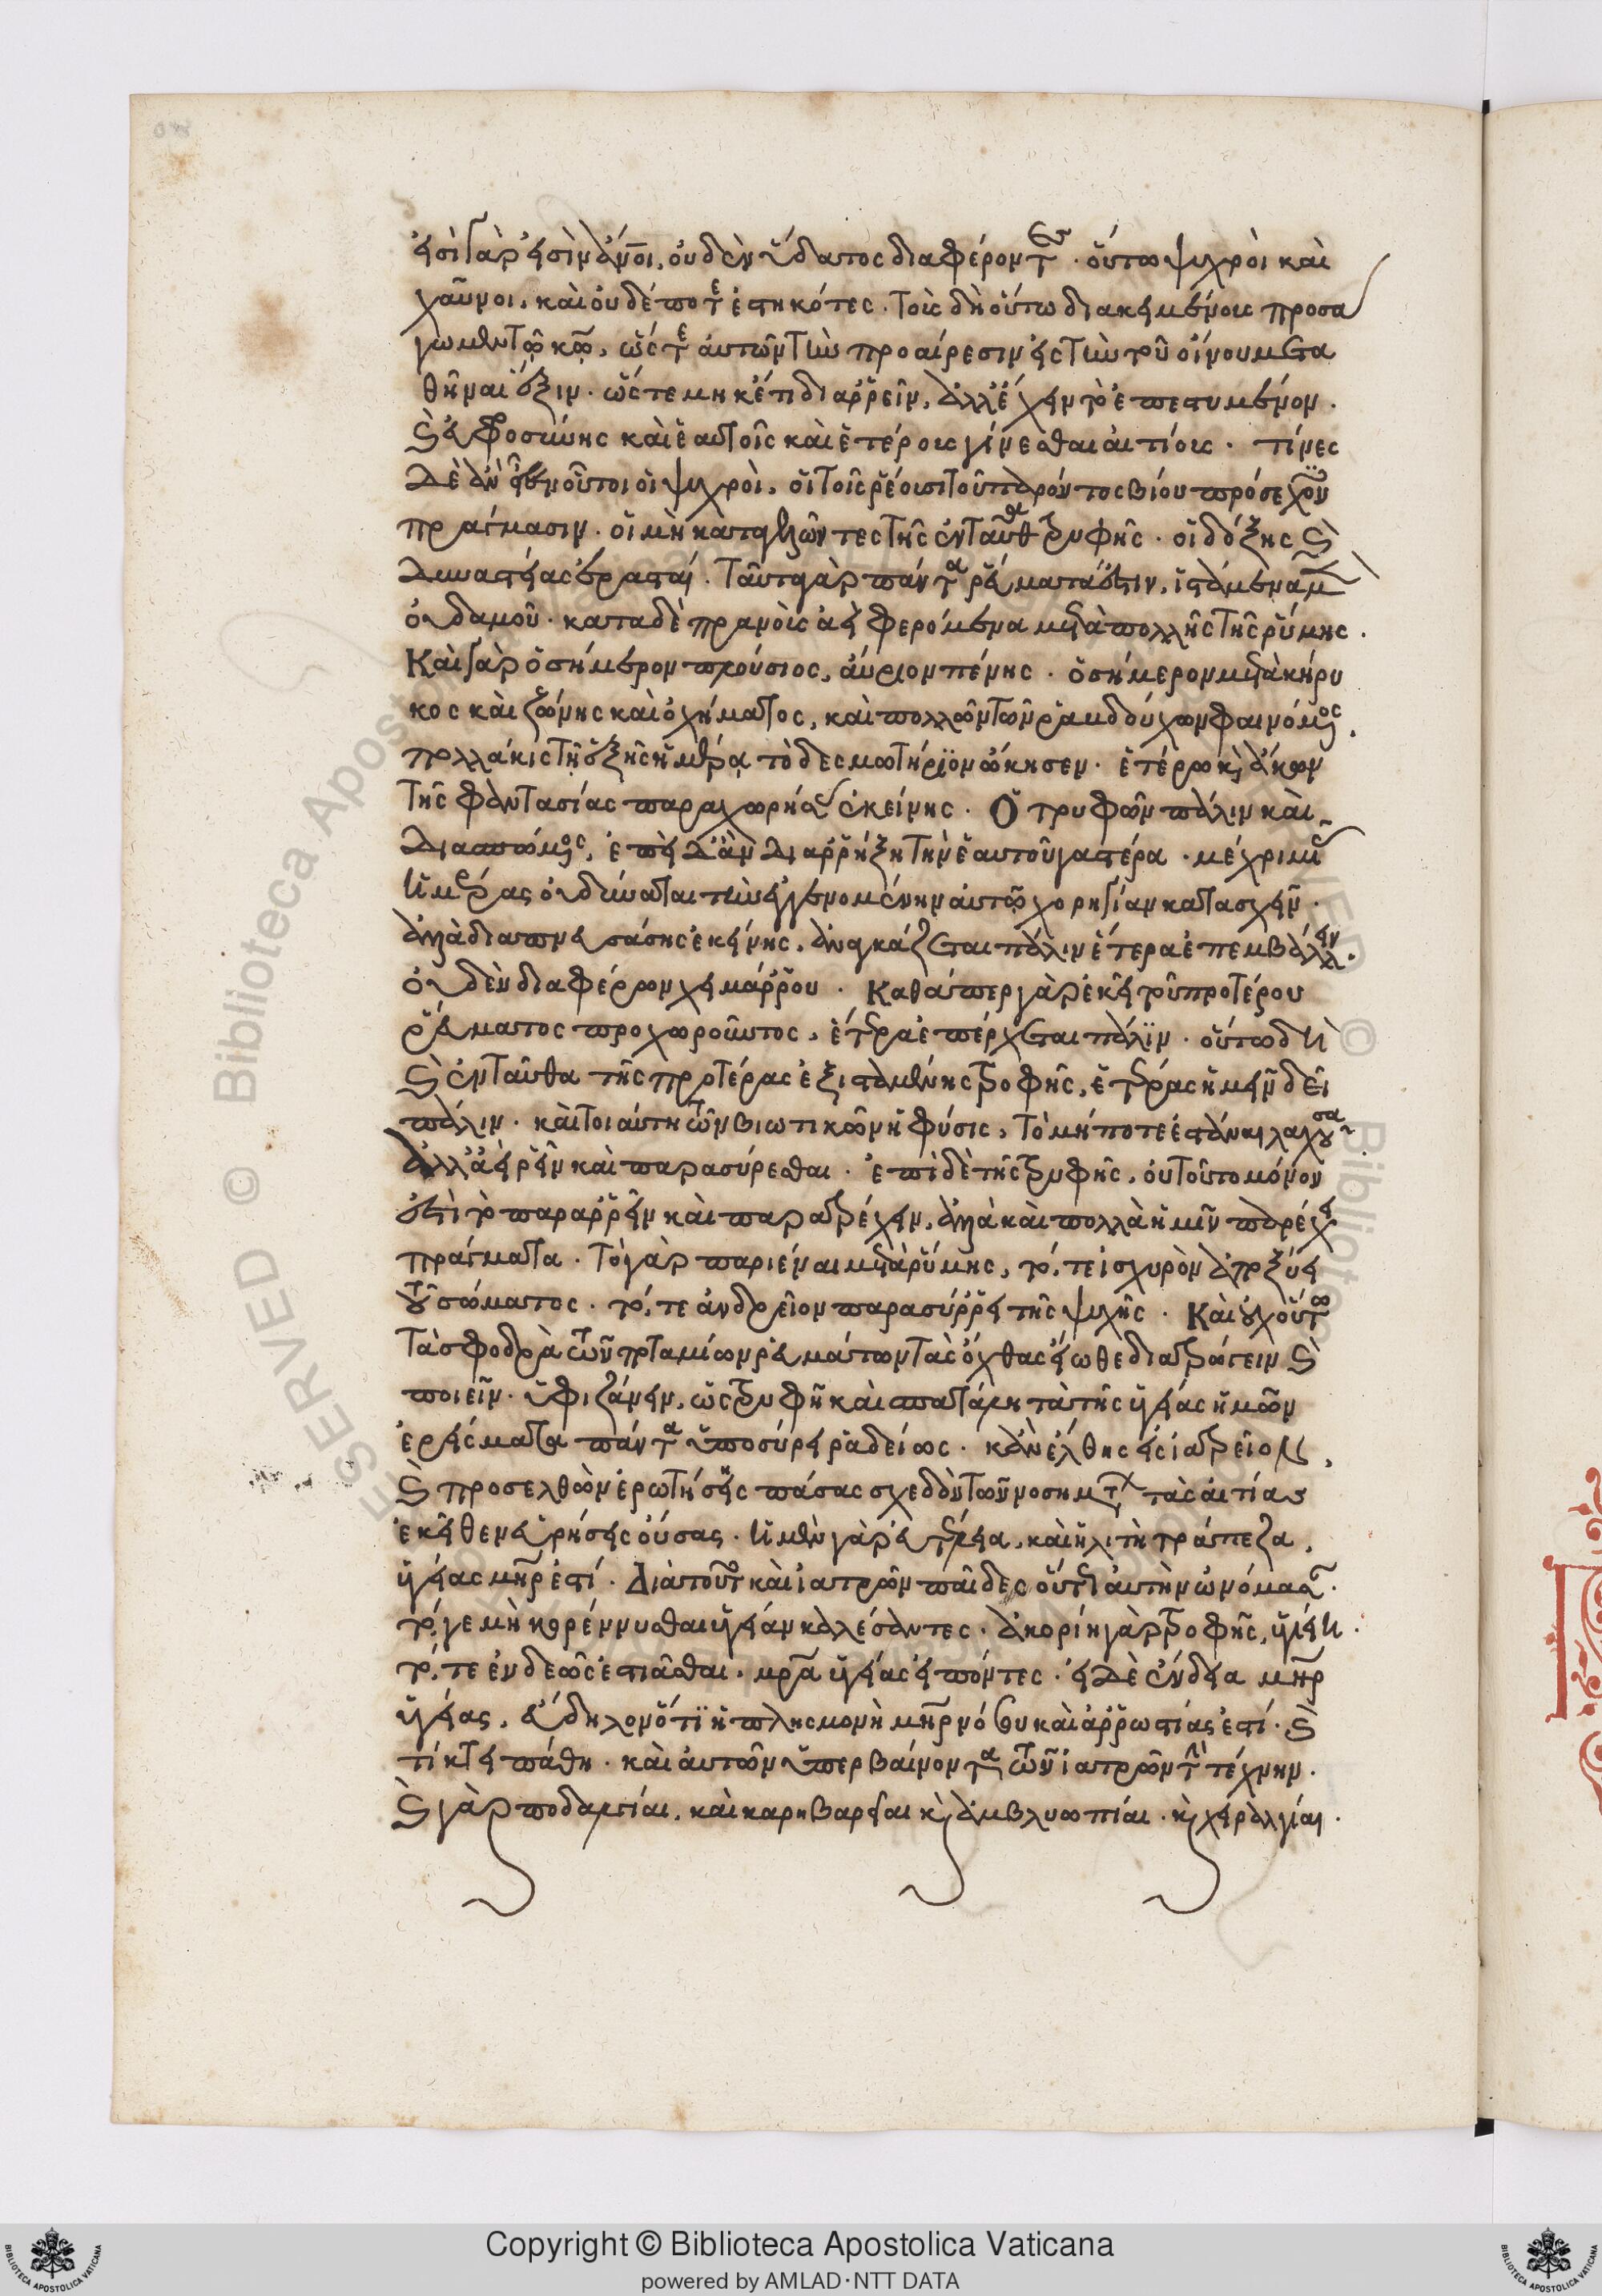 εἰσὶ γὰρ εἰσὶν ἄνοι, οὐδὲν ὕδατος διαφέροντες. οὕτω ψυχροὶ καὶ
χαῦνοι, καὶ οὐδέποτε ἑστηκότες. τοὺς δὴ οὕτω διακειμένους προσά
γωμεν τῷ κῷ, ὥστε αὐτῶν τὴν προαίρεσιν εἰς τὴν τοῦ οἴνου μετα
θῆναι ἕξιν. ὥστε μηκέτι διαρρεῖν, ἀλλ' ἔχειν τὸ ἐπεστυμμένον.
καὶ εὐφροσύνης καὶ ἑαυτοῖς καὶ ἑτέροις γίνεσθαι αἰτίους. τίνες
δὲ ἂν εἶεν οὗτοι οἱ ψυχροὶ, οἱ τοῖς ῥέουσι τοῦ παρόντος βίου προσέχοντες
πράγμασιν. οἱ μὴ καταγελῶντες τῆς ἐνταῦθα τρυφῆς. οἱ δόξης καὶ
δυναστείας ἐρασταί. ταῦτα γὰρ πάντα ῥεύματά ἐστιν, ἱστάμενα μὲν
οὐδαμοῦ. κατὰ δὲ πρανοῦς ἀεὶ φερόμενα μετὰ πολλῆς τῆς ῥύμης.
Καὶ γὰρ ὁ σήμερον πλούσιος, αὔριον πένης. ὁ σήμερον μετὰ κήρυ
κος καὶ ζώνης καὶ ὀχήματος, καὶ πολλῶν τῶν ῥαβδούχων φαινόμενος,
πολλάκις τῇ ἑξῆς ἡμέρᾳ τὸ δεσμωτήριον ὤκησεν. ἑτέρῳ καὶ ἄκων
τῆς φαντασίας παραχωρήσας ἐκείνης. Ὁ τρυφῶν πάλιν καὶ
διασπώμενος, ἐπειδὰν διαρρήξῃ τὴν ἑαυτοῦ γαστέρα. μέχρι μιᾶς
ἡμέρας οὐ δύναται τὴν ἐγγενομένην αὐτῷ χορηγίαν κατασχεῖν.
ἀλλὰ διαπνευσάσης ἐκείνης, ἀναγκάζεται πάλιν ἕτερα ἐπεμβάλλειν.
οὐδὲν διαφέρων χειμάρρου. Καθάπερ γὰρ ἐκεῖ τοῦ προτέρου
ῥεύματος προχωροῦντος, ἕτερα ἐπέρχεται πάλιν. οὕτω δὴ
καὶ ἐνταῦθα τῆς προτέρας ἐξισταμένης τροφῆς, ἑτέρας ἡμῖν δεῖ
πάλιν. καὶ τοιαύτη τῶν βιωτικῶν ἡ φύσις, τὸ μήποτε ἑστάναι λαχοῦσα.
ἀλλ' ἀεὶ ῥεῖν καὶ παρασύρεσθαι. ἐπὶ δὲ τῆς τρυφῆς, οὐ τοῦτο μόνον
ἐστὶ τὸ παραρρεῖν καὶ παρατρέχειν, ἀλλὰ καὶ πολλὰ ἡμῖν παρέχει
πράγματα. τὸ γὰρ παριέναι μετὰ ῥύμης, τό, τε ἰσχυρὸν ἀποξύει
τοῦ σώματος. τό, τε ἀνδρεῖον παρασύρρει τῆς ψυχῆς. Καὶ οὐχ οὕτω
τὰ σφοδρὰ τῶν ποταμίων ῥευμάτων τὰς ὄχθας εἴωθε διατρώγειν καὶ
ποιεῖν ὑφιζάνειν, ὡς τρυφὴ καὶ σπατάλη τὰ τῆς ὑγείας ἡμῶν
ἐρείσματα πάντα ὑποσύρει ῥαδείως. κἂν ἔλθῃς εἰς ἰατρεῖον,
καὶ προσελθὼν ἐρωτήσῃς πάσας σχεδὸν τῶν νοσημάτων τὰς αἰτίας
ἐκεῖθεν εὑρήσεις οὔσας. ἡ μὲν γὰρ εὐτέλεια, καὶ ἡ λιτὴ τράπεζα,
ὑγείας μήτηρ ἐστί. Διατοῦτο καὶ ἰατρῶν παῖδες οὕτως αὐτὴν ὠνόμασαν.
τό, γε μὴ κορέννυσθαι ὑγείαν καλέσαντες. ἀκορίη γὰρ τροφῆς, ὑγιείη.
τό, τε ἐνδεῶς ἑστιᾶσθαι, μητέρα ὑγείας εἰπόντες. εἰ δὲ ἔνδεια μήτηρ
ὑγείας, εὔδηλον ὅτι ἡ πλησμονὴ μήτηρ νόσου καὶ ἀρρωστίας ἐστί. καὶ
τίκτει πάθη. καὶ αὐτῶν ὑπερβαίνοντα τῶν ἰατρῶν τὴν τέχνην.
καὶ γὰρ ποδαλγίαι, καὶ καρηβαρίαι καὶ ἀμβλυωπίαι. καὶ χειραλγίαι.
Copyright © Biblioteca Apostolica Vaticana
powered by AMLAD·NTT DATA